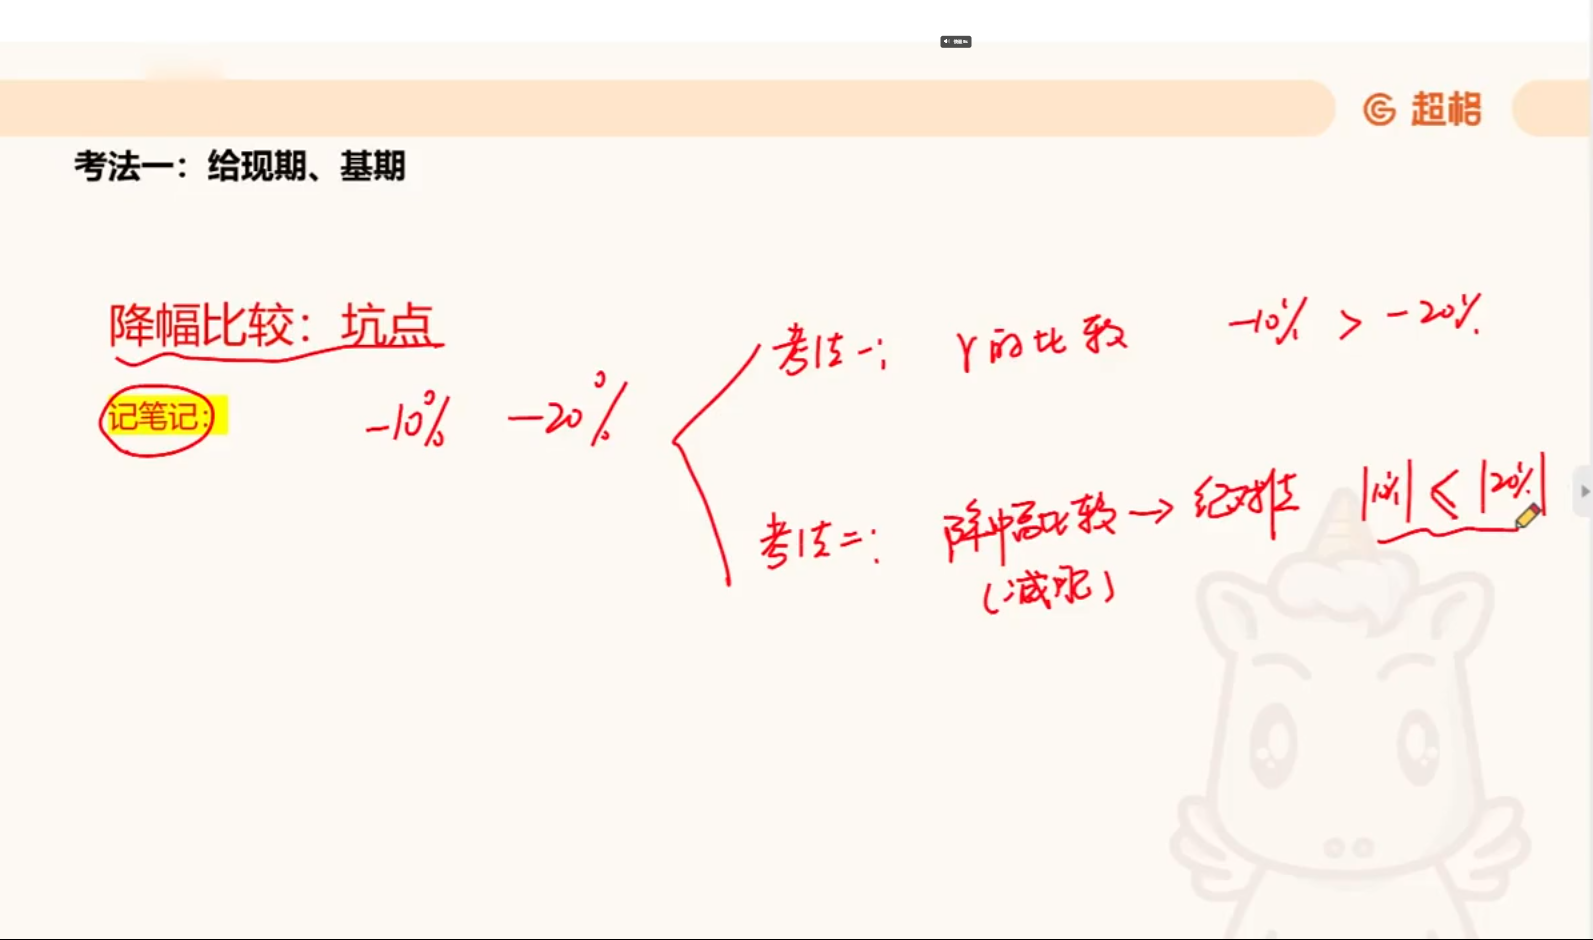 超格
考法一：给现期、基期
降幅比较：坑点
记笔记：
-10% -20%
考法一： r的比较 -10% > -20%
考法二： 降幅比较→绝对值 |10%| < |20%|
(减肥)